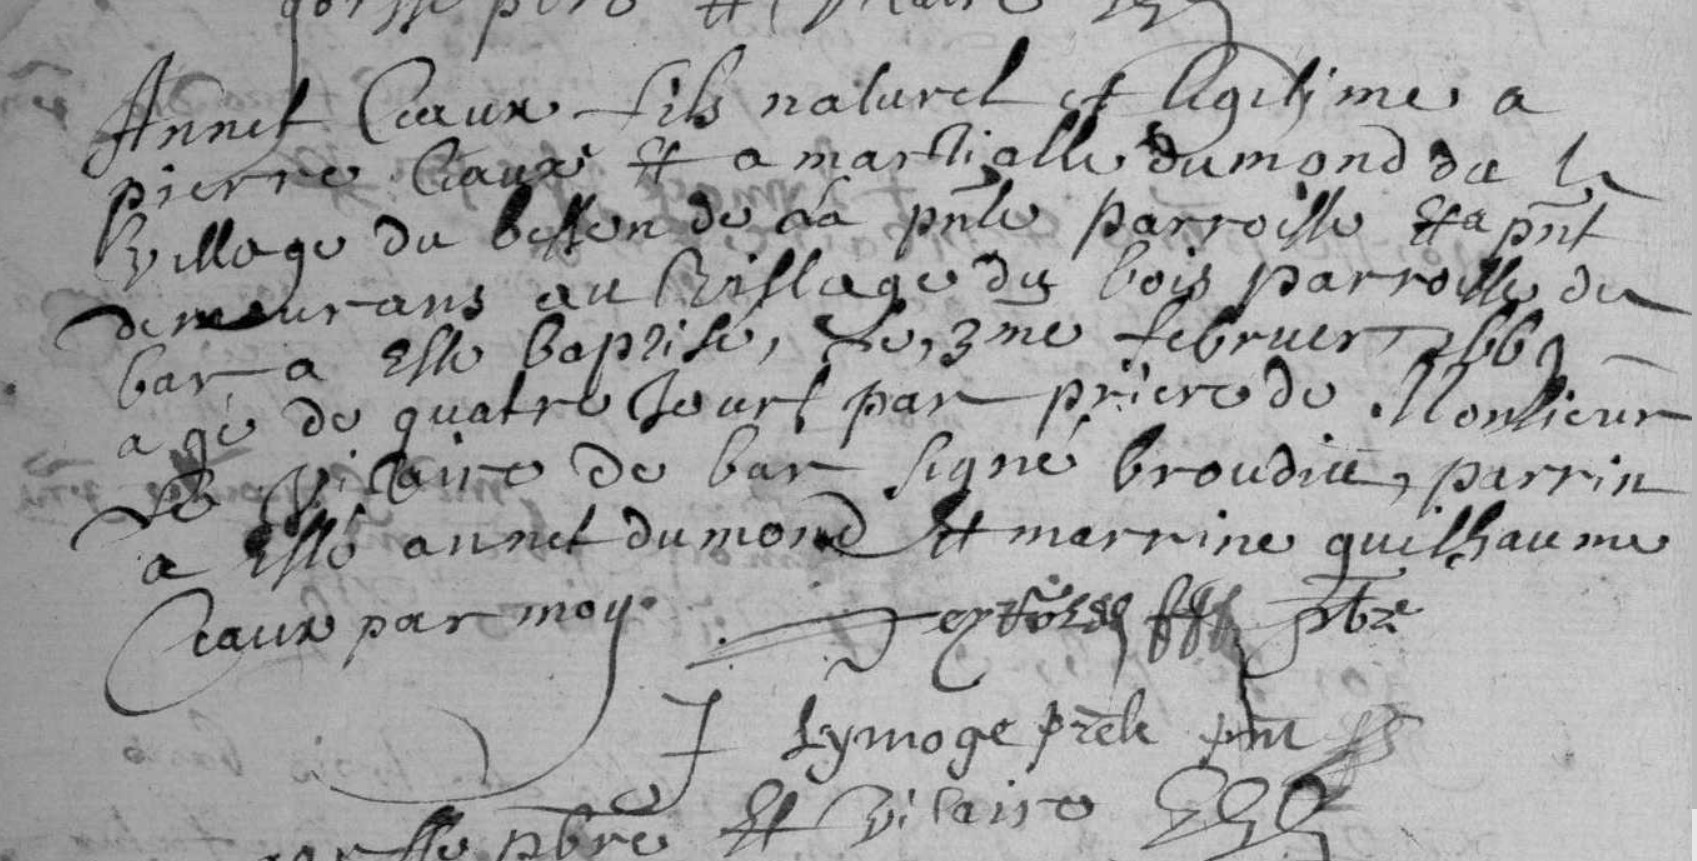 gorsse pbre Et Vicaire
Annet Ceaux fils naturel et legitime a
pierre Ceaux Et a martialle dumond du
Village du besson de la pnte parroisse Et a pnt
demeurans au Village du bois parroisse de
bar a Esté baptisé, Le, 3me februer 1669
agé de quatre Jours par priere de Monsieur
Le Vicaire de bar signé broudiee, parrin
a Esté annet dumond Et marrine guilhaume
Ceaux par moy
Lymoge prete pnt
gorsse pbre Et Vicaire